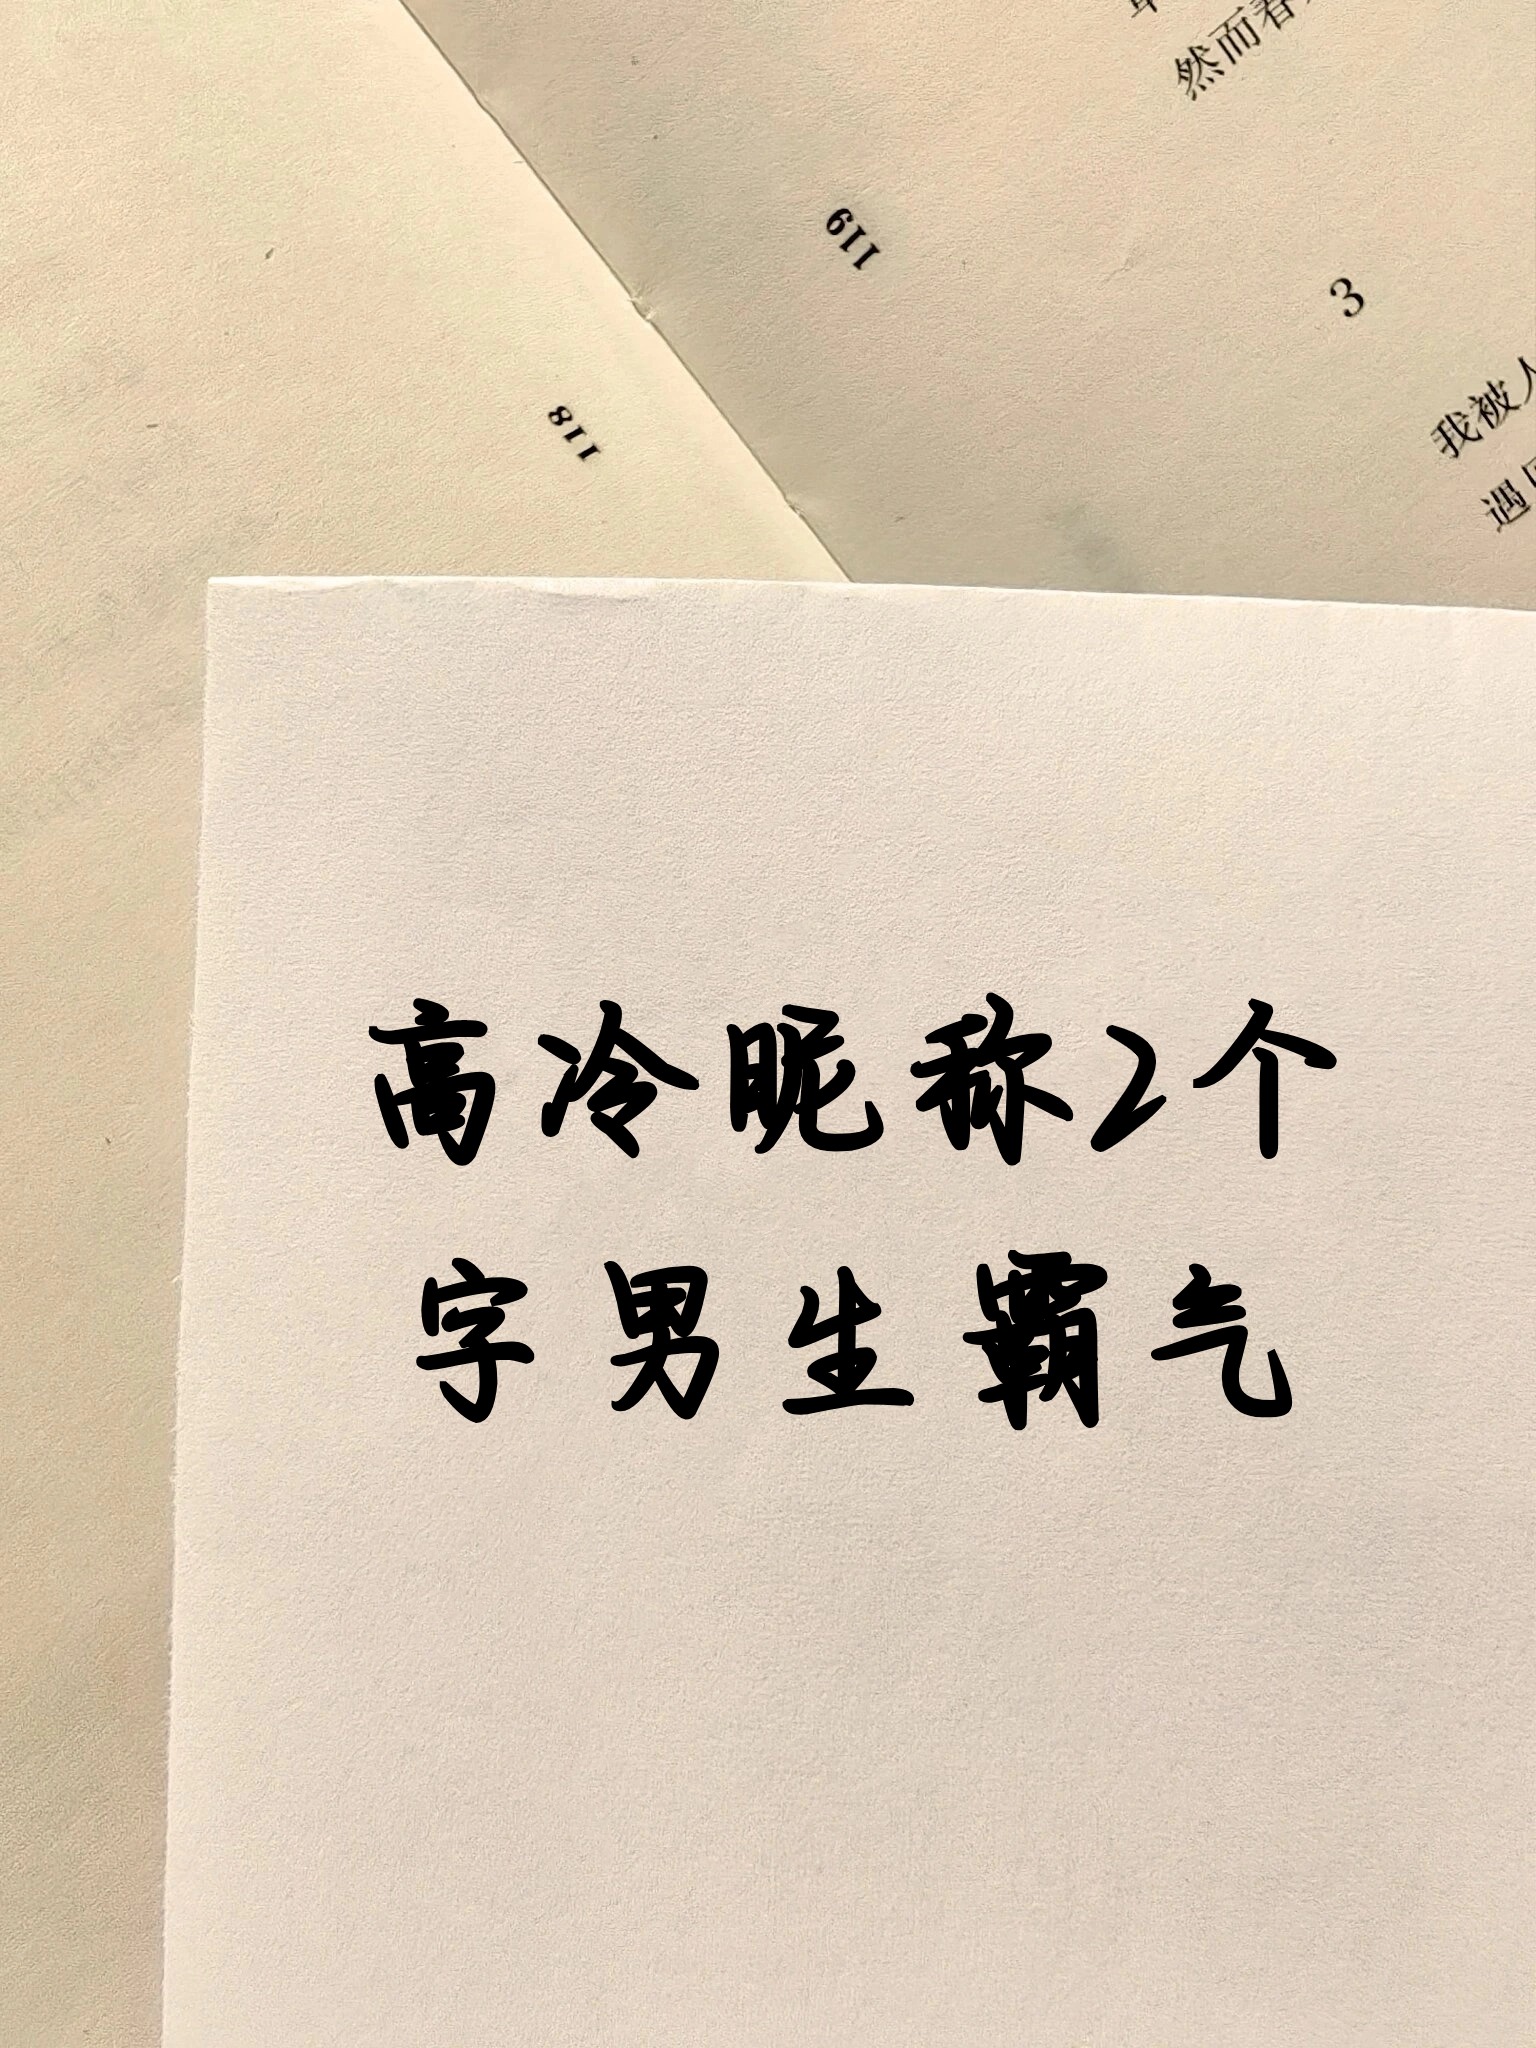 然而春
119
3
118
我被人
遇
高冷昵称2个
字男生霸气